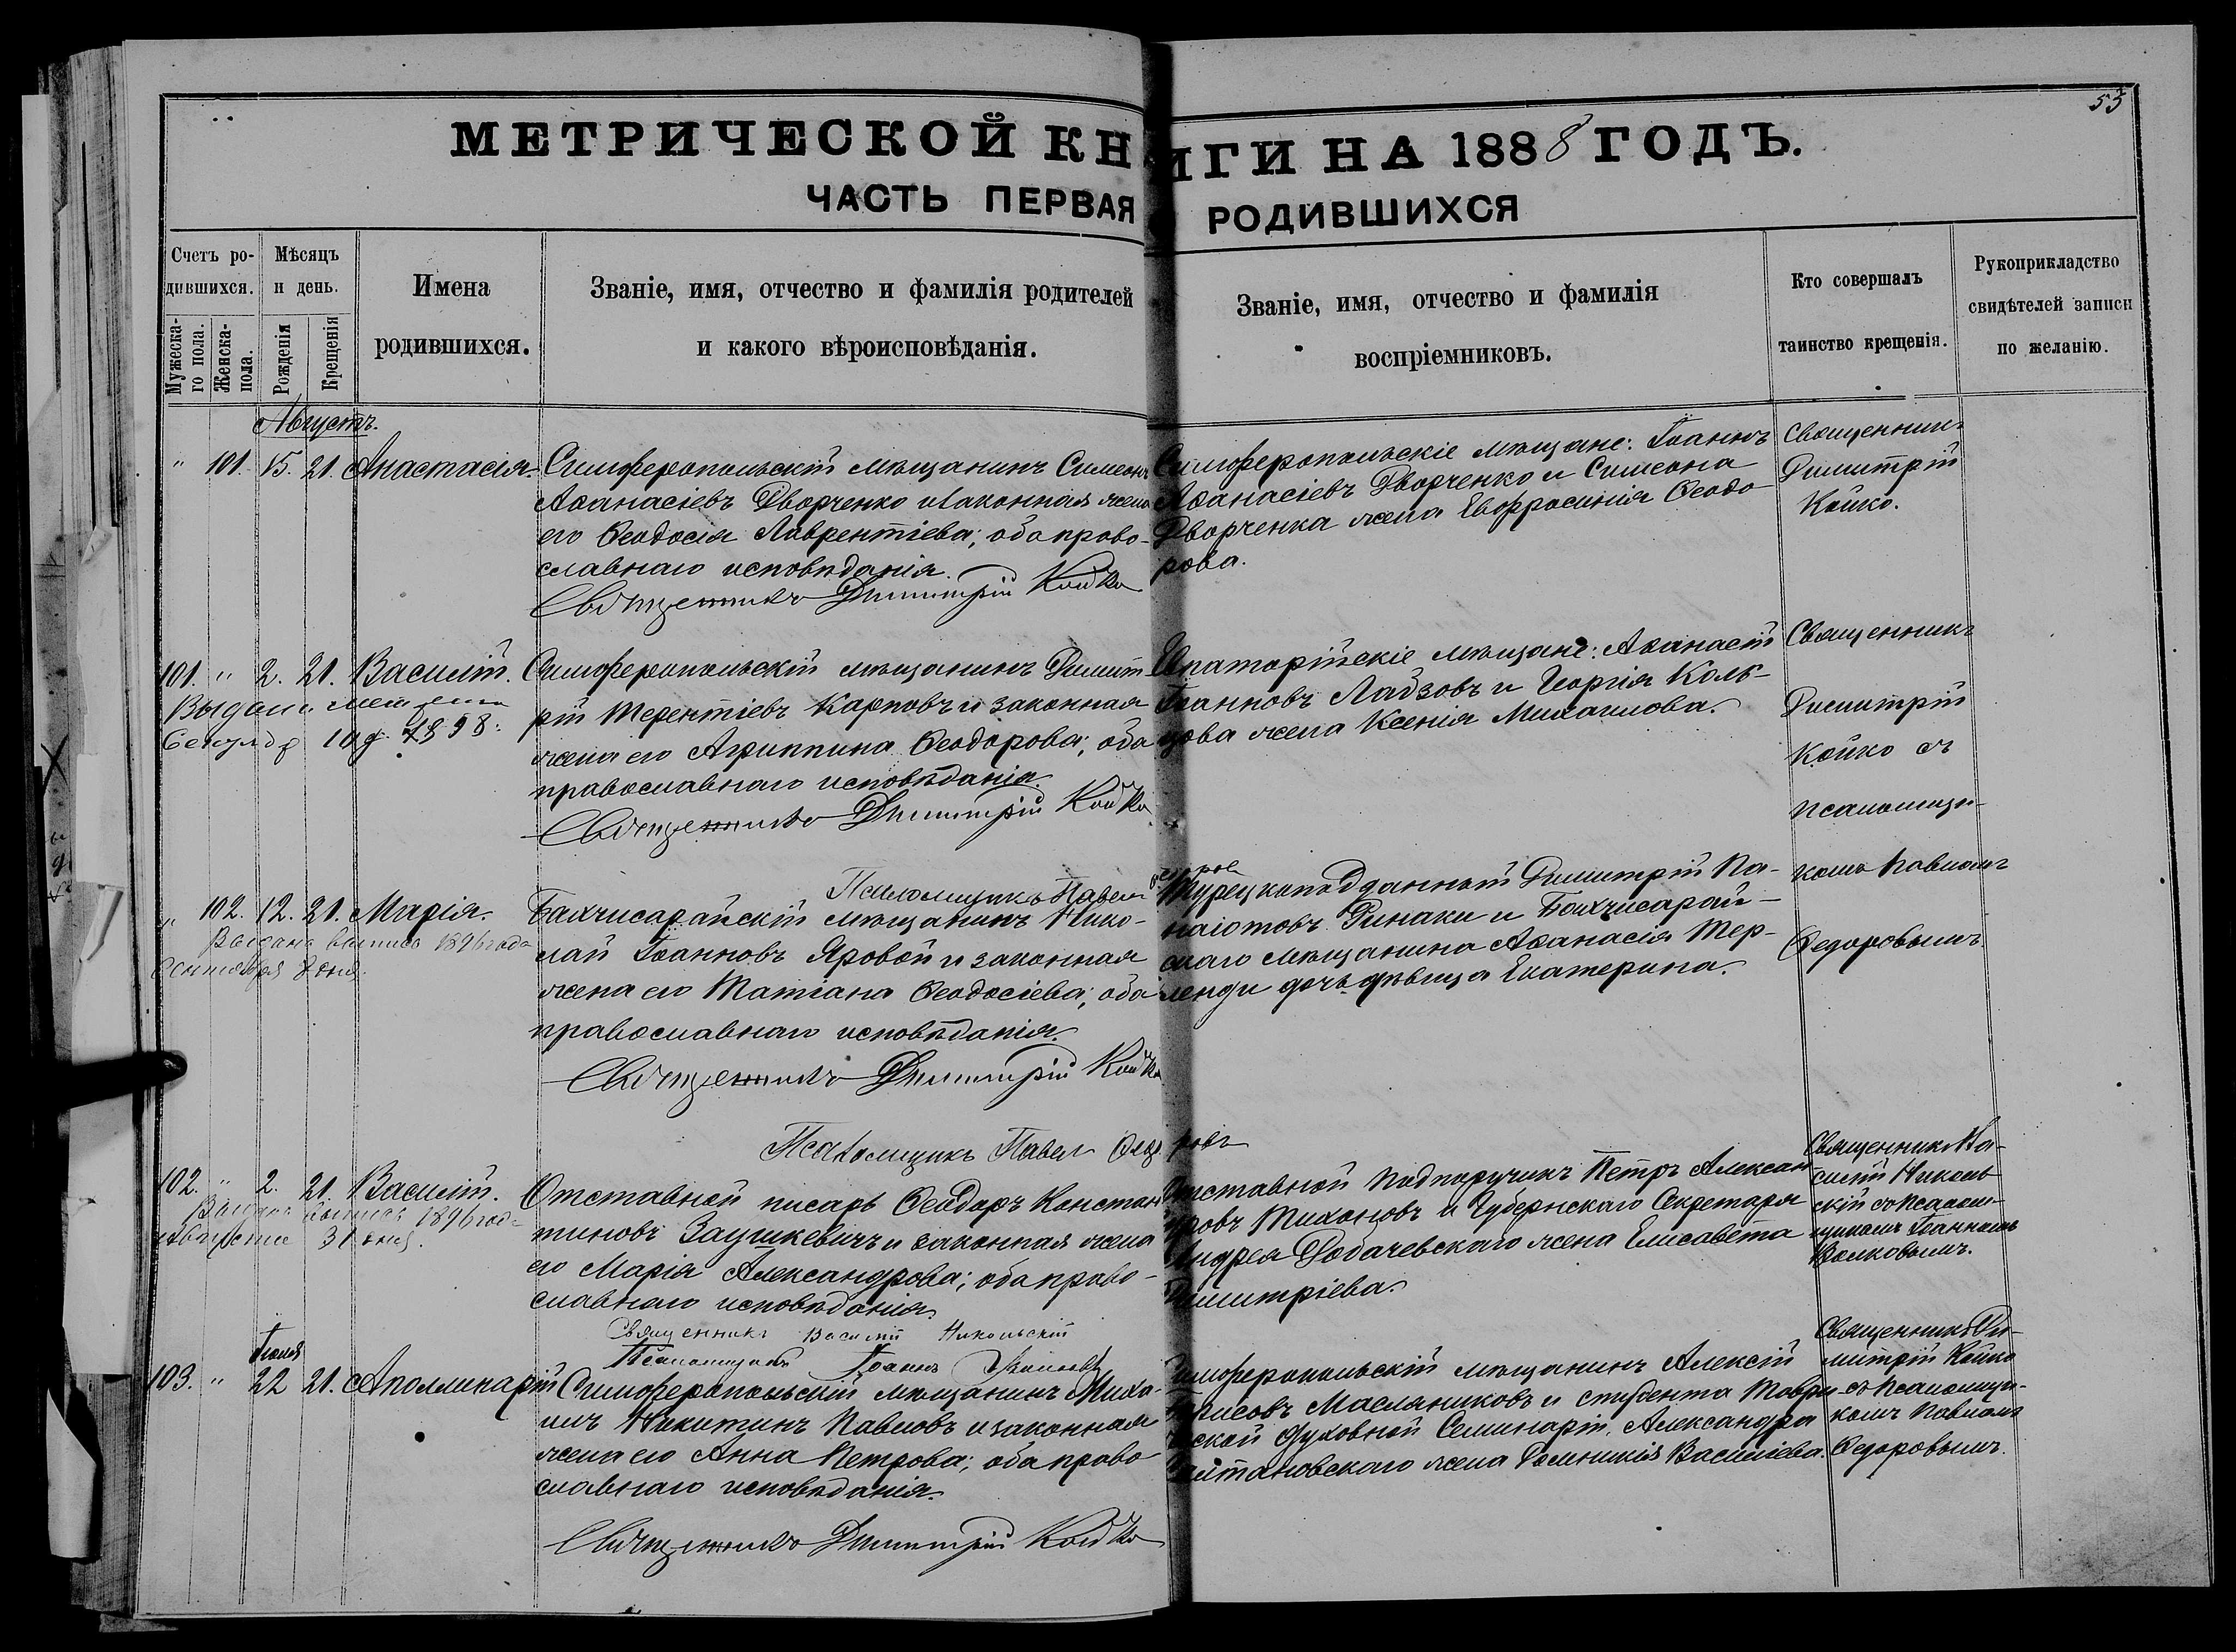 53
МЕТРИЧЕСКОЙ КНИГИ НА 1888 ГОДЪ.
ЧАСТЬ ПЕРВАЯ РОДИВШИХСЯ
Счетъ ро-
дившихся.
Мужеска-
го пола.
Женска-
пола.
Мѣсяцъ
и день.
Рожденія
Крещенія
Имена
родившихся.
Званіе, имя, отчество и фамилія родителей
и какого вѣроисповѣданія.
Званіе, имя, отчество и фамилія
воспріемниковъ.
Кто совершалъ
таинство крещенія.
Рукоприкладство
свидѣтелей записи
по желанію.
Августъ.
" 101. 15. 21. Анастасія.
Симферопольскій мѣщанинъ Симеонъ
Аѳанасіевъ Дворченко и законная жена
его Ѳеодосія Лаврентіева; оба право-
славнаго исповѣданія.
Священникъ Димитрій Койко
Симферопольскіе мѣщане: Іоаннъ
Аѳанасіевъ Дворченко и Симеона
Дворченка жена Евфросинія Ѳеодо
рова.
Священникъ
Димитрій
Койко.
101. " 2. 21. Василій.
Выдана
1898.
Симферопольскій мѣщанинъ Димит
рій Терентіевъ Карповъ и законная
жена его Агриппина Ѳеодорова; оба
православнаго исповѣданія.
Священникъ Димитрій Койко
Псаломщикъ Павелъ Ѳедоровъ
Евпаторійскіе мѣщане: Аѳанасій
Іоанновъ Ладзовъ и Георгія Коль-
цова жена Ксенія Михаилова.
Священникъ
Димитрій
Койко съ
псаломщи-
комъ Павломъ
Ѳедоровымъ
" 102. 12. 21. Марія.
Выдана выпись 1896 года
Сентября дня.
Бахчисарайскій мѣщанинъ Нико-
лай Іоанновъ Яровой и законная
жена его Татіана Ѳеодосіева; оба
православнаго исповѣданія.
Священникъ Димитрій Койко
Псаломщикъ Павелъ Ѳедоровъ
Турецкоподданный Димитрій Па-
наіотовъ Ринаки и Бахчисарай-
скаго мѣщанина Аѳанасія Тер-
ленди дочь дѣвица Екатерина.
102. " 2. 21. Василій.
Выдана выпись 1896 года
Августа 31 дня.
Отставной писарь Ѳеодоръ Констан
тиновъ Заушкевичъ и законная жена
его Марія Александрова; оба право-
славнаго исповѣданія.
Священникъ Василій Никольскій
Псаломщикъ Іоаннъ Волковъ
Отставной подпоручикъ Петръ Алексан
дровъ Тихоновъ и Губернскаго Секретаря
Андрея Добачевскаго жена Елисавета
Димитріева.
Священникъ Ва-
силій Николь
скій съ псалом-
щикомъ Іоанномъ
Волковымъ.
Іюля
103. " 22 21. Аполлинарій
Симферопольскій мѣщанинъ Миха-
илъ Никитинъ Павловъ и законная
жена его Анна Петрова; оба право-
славнаго исповѣданія.
Священникъ Димитрій Койко
Симферопольскій мѣщанинъ Алексій
Борисовъ Масляниковъ и студента Таври-
ческой Духовной Семинаріи, Александра
жена Домникія Василіева.
Священникъ Ди-
митрій Койко
съ псаломщи-
комъ Павломъ
Ѳедоровымъ.